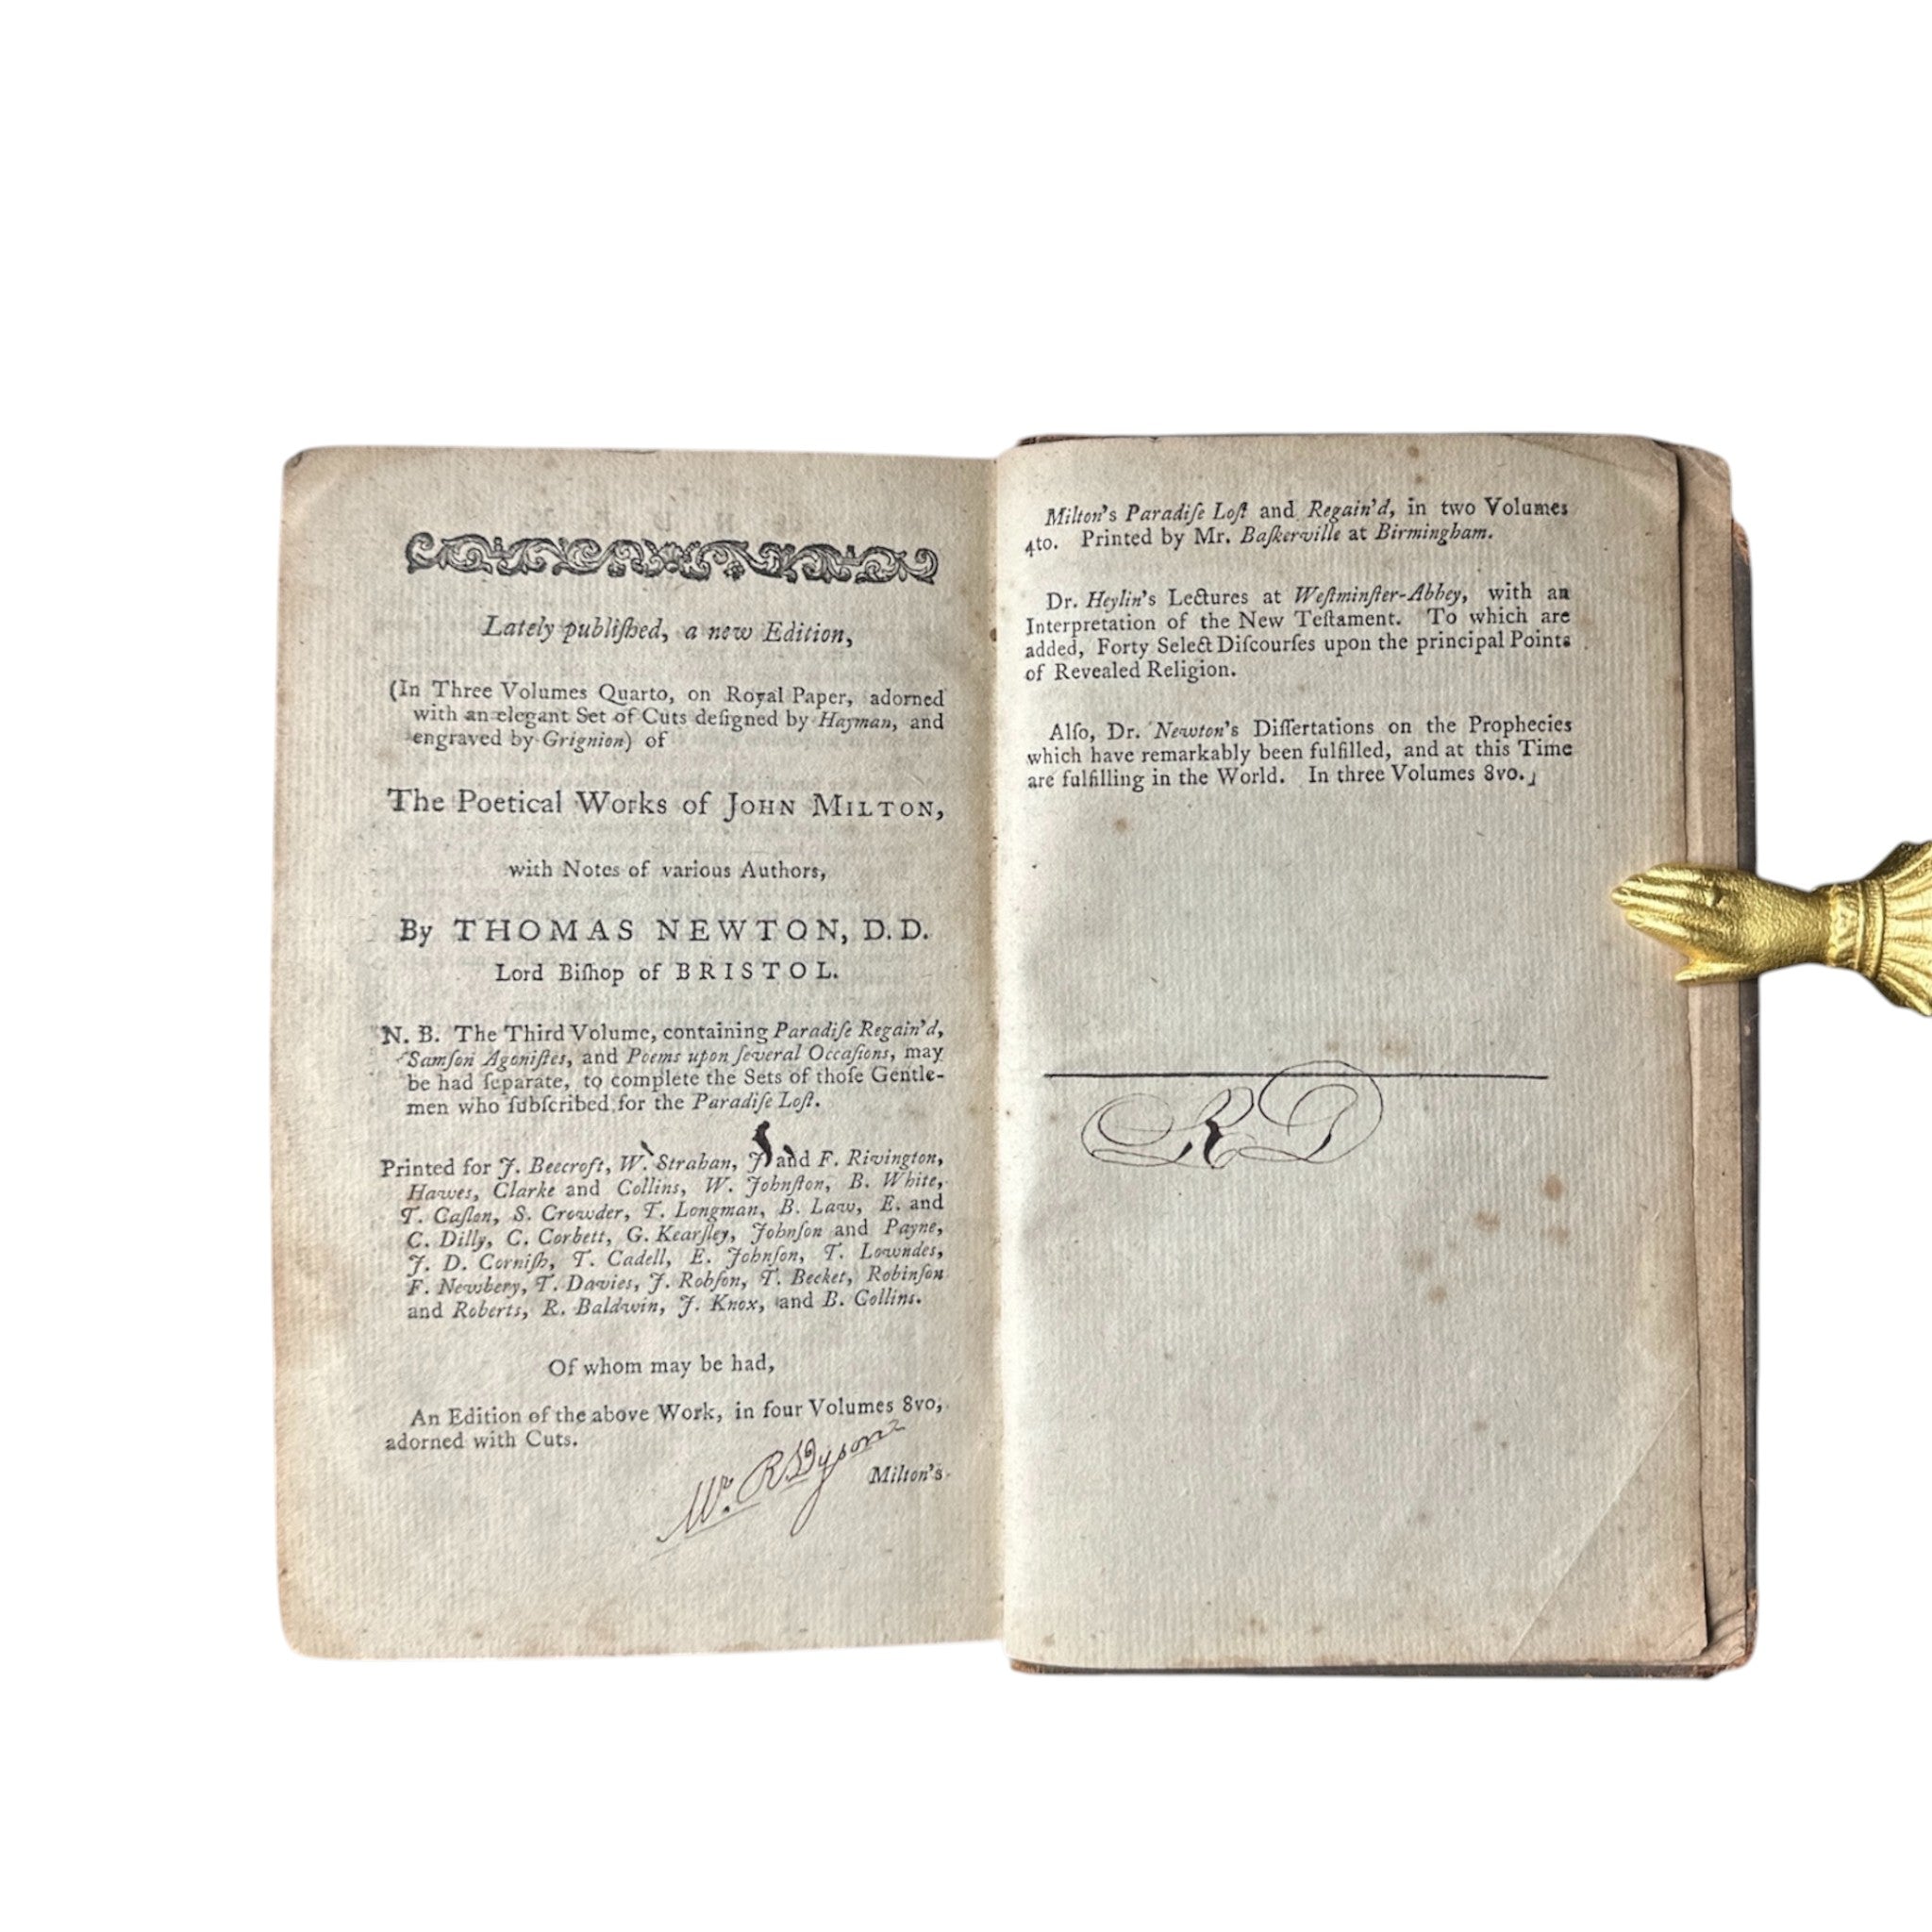 Lately publiſhed, a new Edition,
(In Three Volumes Quarto, on Royal Paper, adorned
with an elegant Set of Cuts deſigned by Hayman, and
engraved by Grignion) of
The Poetical Works of JOHN MILTON,
with Notes of various Authors,
By THOMAS NEWTON, D.D.
Lord Biſhop of BRISTOL.
N. B. The Third Volume, containing Paradiſe Regain'd,
Samſon Agoniſtes, and Poems upon ſeveral Occaſions, may
be had ſeparate, to complete the Sets of thoſe Gentle-
men who ſubſcribed for the Paradiſe Loſt.
Printed for J. Beecroft, W. Strahan, J. and F. Rivington,
Hawes, Clarke and Collins, W. Johnſton, B. White,
T. Caſlon, S. Crowder, T. Longman, B. Law, E. and
C. Dilly, C. Corbett, G. Kearſley, Johnſon and Payne,
J. D. Corniſh, T. Cadell, E. Johnſon, T. Lowndes,
F. Newbery, T. Davies, J. Robſon, T. Becket, Robinſon
and Roberts, R. Baldwin, J. Knox, and B. Collins.
Of whom may be had,
An Edition of the above Work, in four Volumes 8vo,
adorned with Cuts.
Wr. R Dyson
Milton's
Milton's Paradiſe Loſt and Regain'd, in two Volumes
4to. Printed by Mr. Baſkerville at Birmingham.
Dr. Heylin's Lectures at Weſtminſter-Abbey, with an
Interpretation of the New Teſtament. To which are
added, Forty Select Diſcourſes upon the principal Points
of Revealed Religion.
Alſo, Dr. Newton's Diſſertations on the Prophecies
which have remarkably been fulfilled, and at this Time
are fulfilling in the World. In three Volumes 8vo.
RD